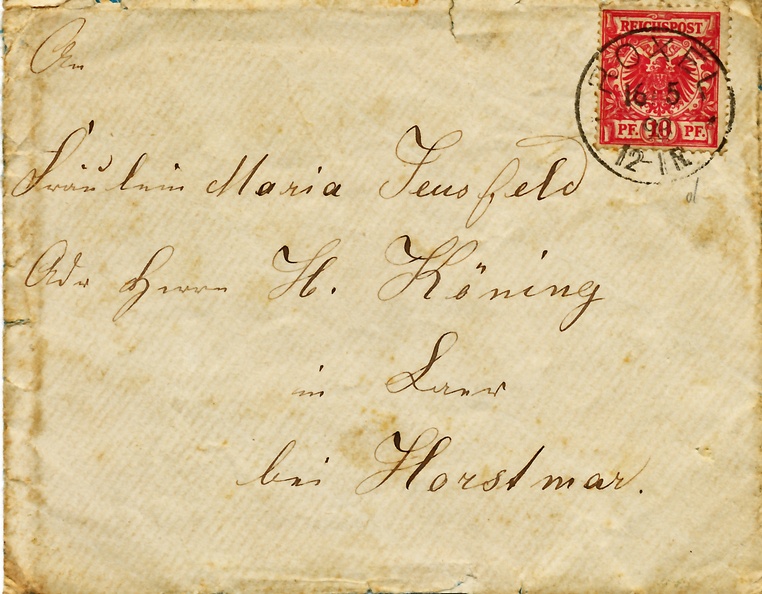 An
Fräulein Maria Jeusfeld
Adr Herrn H. Köning
in Laer
bei Horstmar.
REICHSPOST
PF. 10 PF.
ROXEL
16 5
98
12-1N